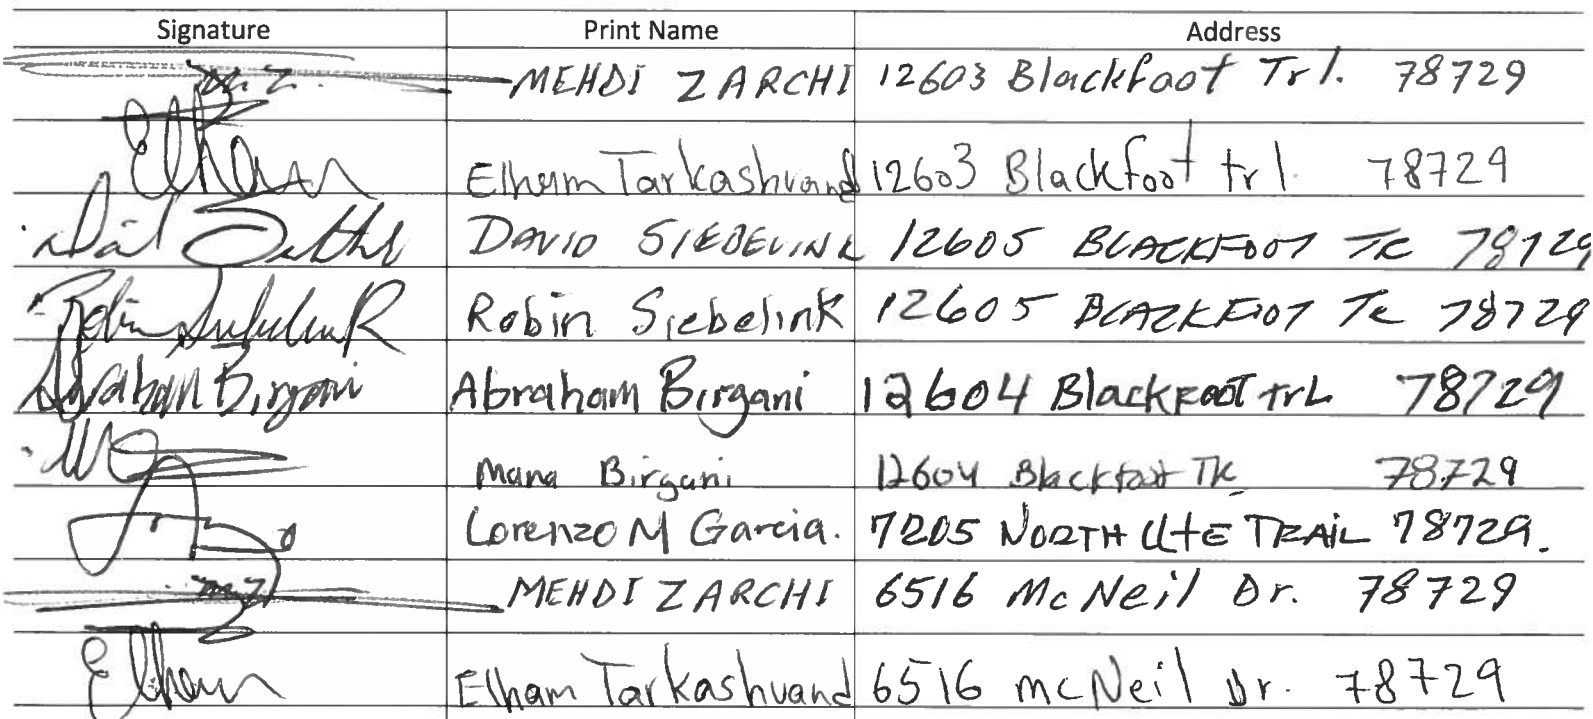 Signature Print Name Address
M.Z. MEHDI ZARCHI 12603 Blackfoot Trl. 78729
Elham Elham Tarkashvand 12603 Blackfoot trl. 78729
DAVID SIEBELINK 12605 BLACKFOOT TR 78729
Robin Siebelink 12605 BLACKFOOT TR 78729
Abraham Birgani Abraham Birgani 12604 Blackfoot trL 78729
Mana Birgani 12604 Blackfoot TR 78729
Lorenzo M Garcia. 7205 NORTH UtE TRAIL 78729.
M.Z. MEHDI ZARCHI 6516 McNeil Dr. 78729
Elham Elham Tarkashvand 6516 mcNeil Dr. 78729